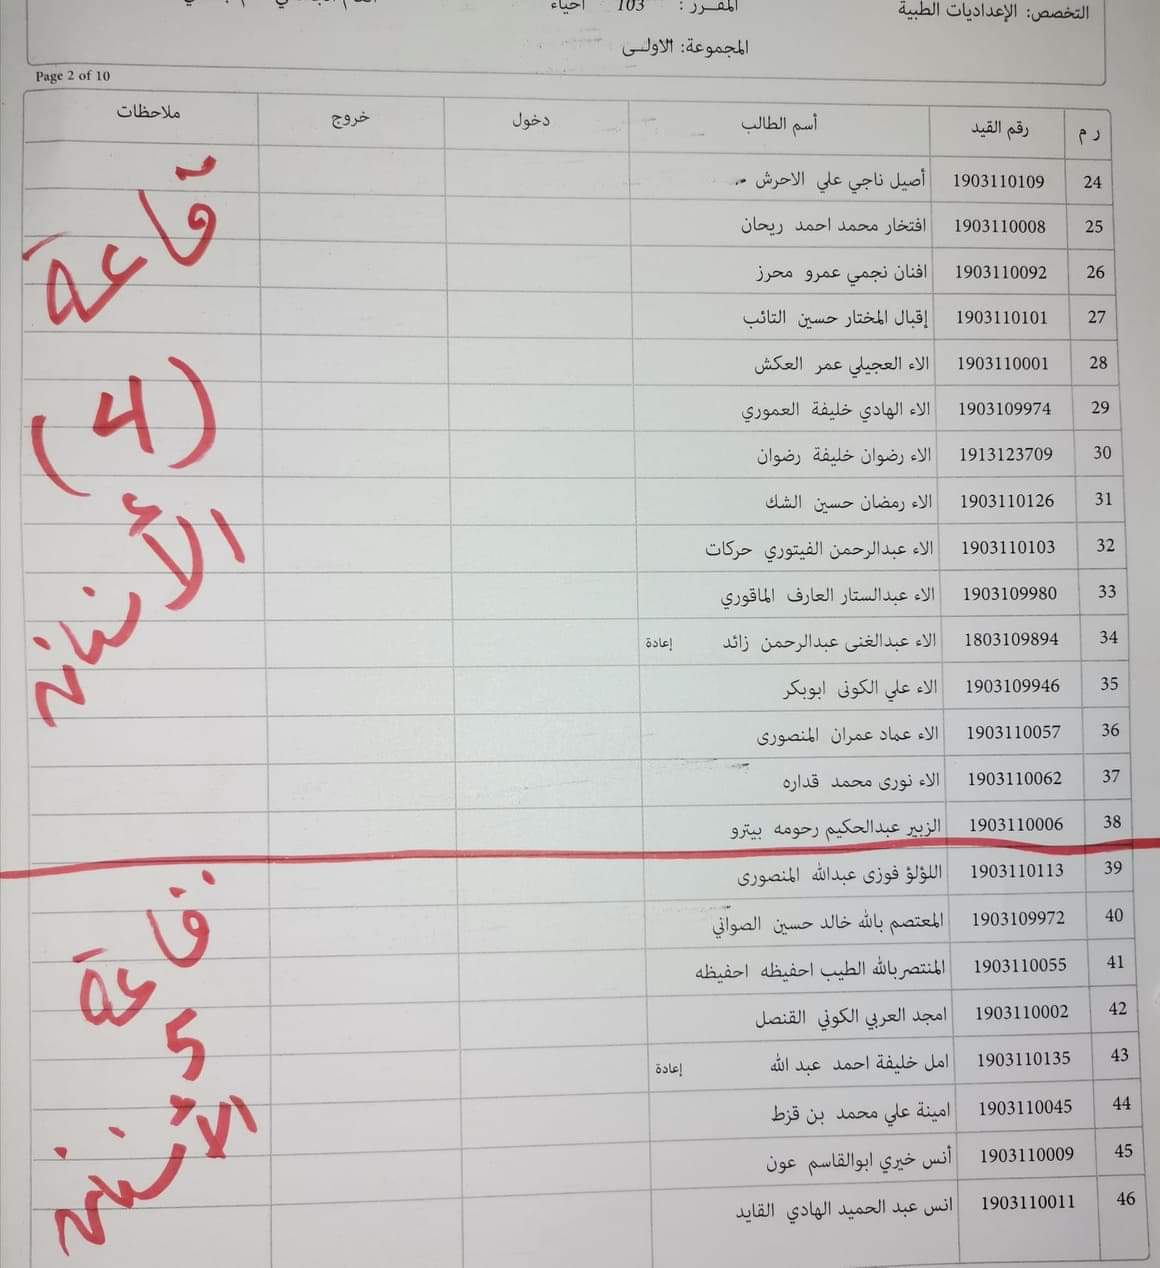 التخصص: الإعداديات الطبية المقرر: 103 احياء
المجموعة: الاولى
Page 2 of 10
ر م رقم القيد أسم الطالب دخول خروج ملاحظات
24 1903110109 أصيل ناجي علي الاحرش
25 1903110008 افتخار محمد احمد ريحان
26 1903110092 افنان نجمي عمرو محرز
27 1903110101 إقبال المختار حسين التائب
28 1903110001 الاء العجيلي عمر العكش
29 1903109974 الاء الهادي خليفة العموري
30 1913123709 الاء رضوان خليفة رضوان
31 1903110126 الاء رمضان حسين الشك
32 1903110103 الاء عبدالرحمن الفيتوري حركات
33 1903109980 الاء عبدالستار العارف الماقوري
34 1803109894 الاء عبدالغنى عبدالرحمن زائد إعادة
35 1903109946 الاء علي الكونى ابوبكر
36 1903110057 الاء عماد عمران المنصورى
37 1903110062 الاء نورى محمد قداره
38 1903110006 الزبير عبدالحكيم رحومه بيترو
قاعة
(4)
الأسنان
39 1903110113 اللؤلؤ فوزى عبدالله المنصورى
40 1903109972 المعتصم بالله خالد حسين الصواني
41 1903110055 المنتصربالله الطيب احفيظه احفيظه
42 1903110002 امجد العربي الكوني القنصل
43 1903110135 امل خليفة احمد عبد الله إعادة
44 1903110045 امينة علي محمد بن قزط
45 1903110009 أنس خيري ابوالقاسم عون
46 1903110011 انس عبد الحميد الهادي القايد
قاعة
5
الأسنان